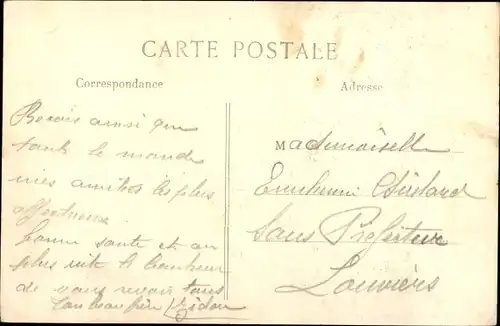 CARTE POSTALE
Correspondance
Adresse
Recois ainsi que
toute le monde
mes amities les plus
affectueuse
bonne sante et au
plus vite le bonheur
de vous revoir tous
Ton beau frère
Mademoiselle
Sous Préfecture
Louviers